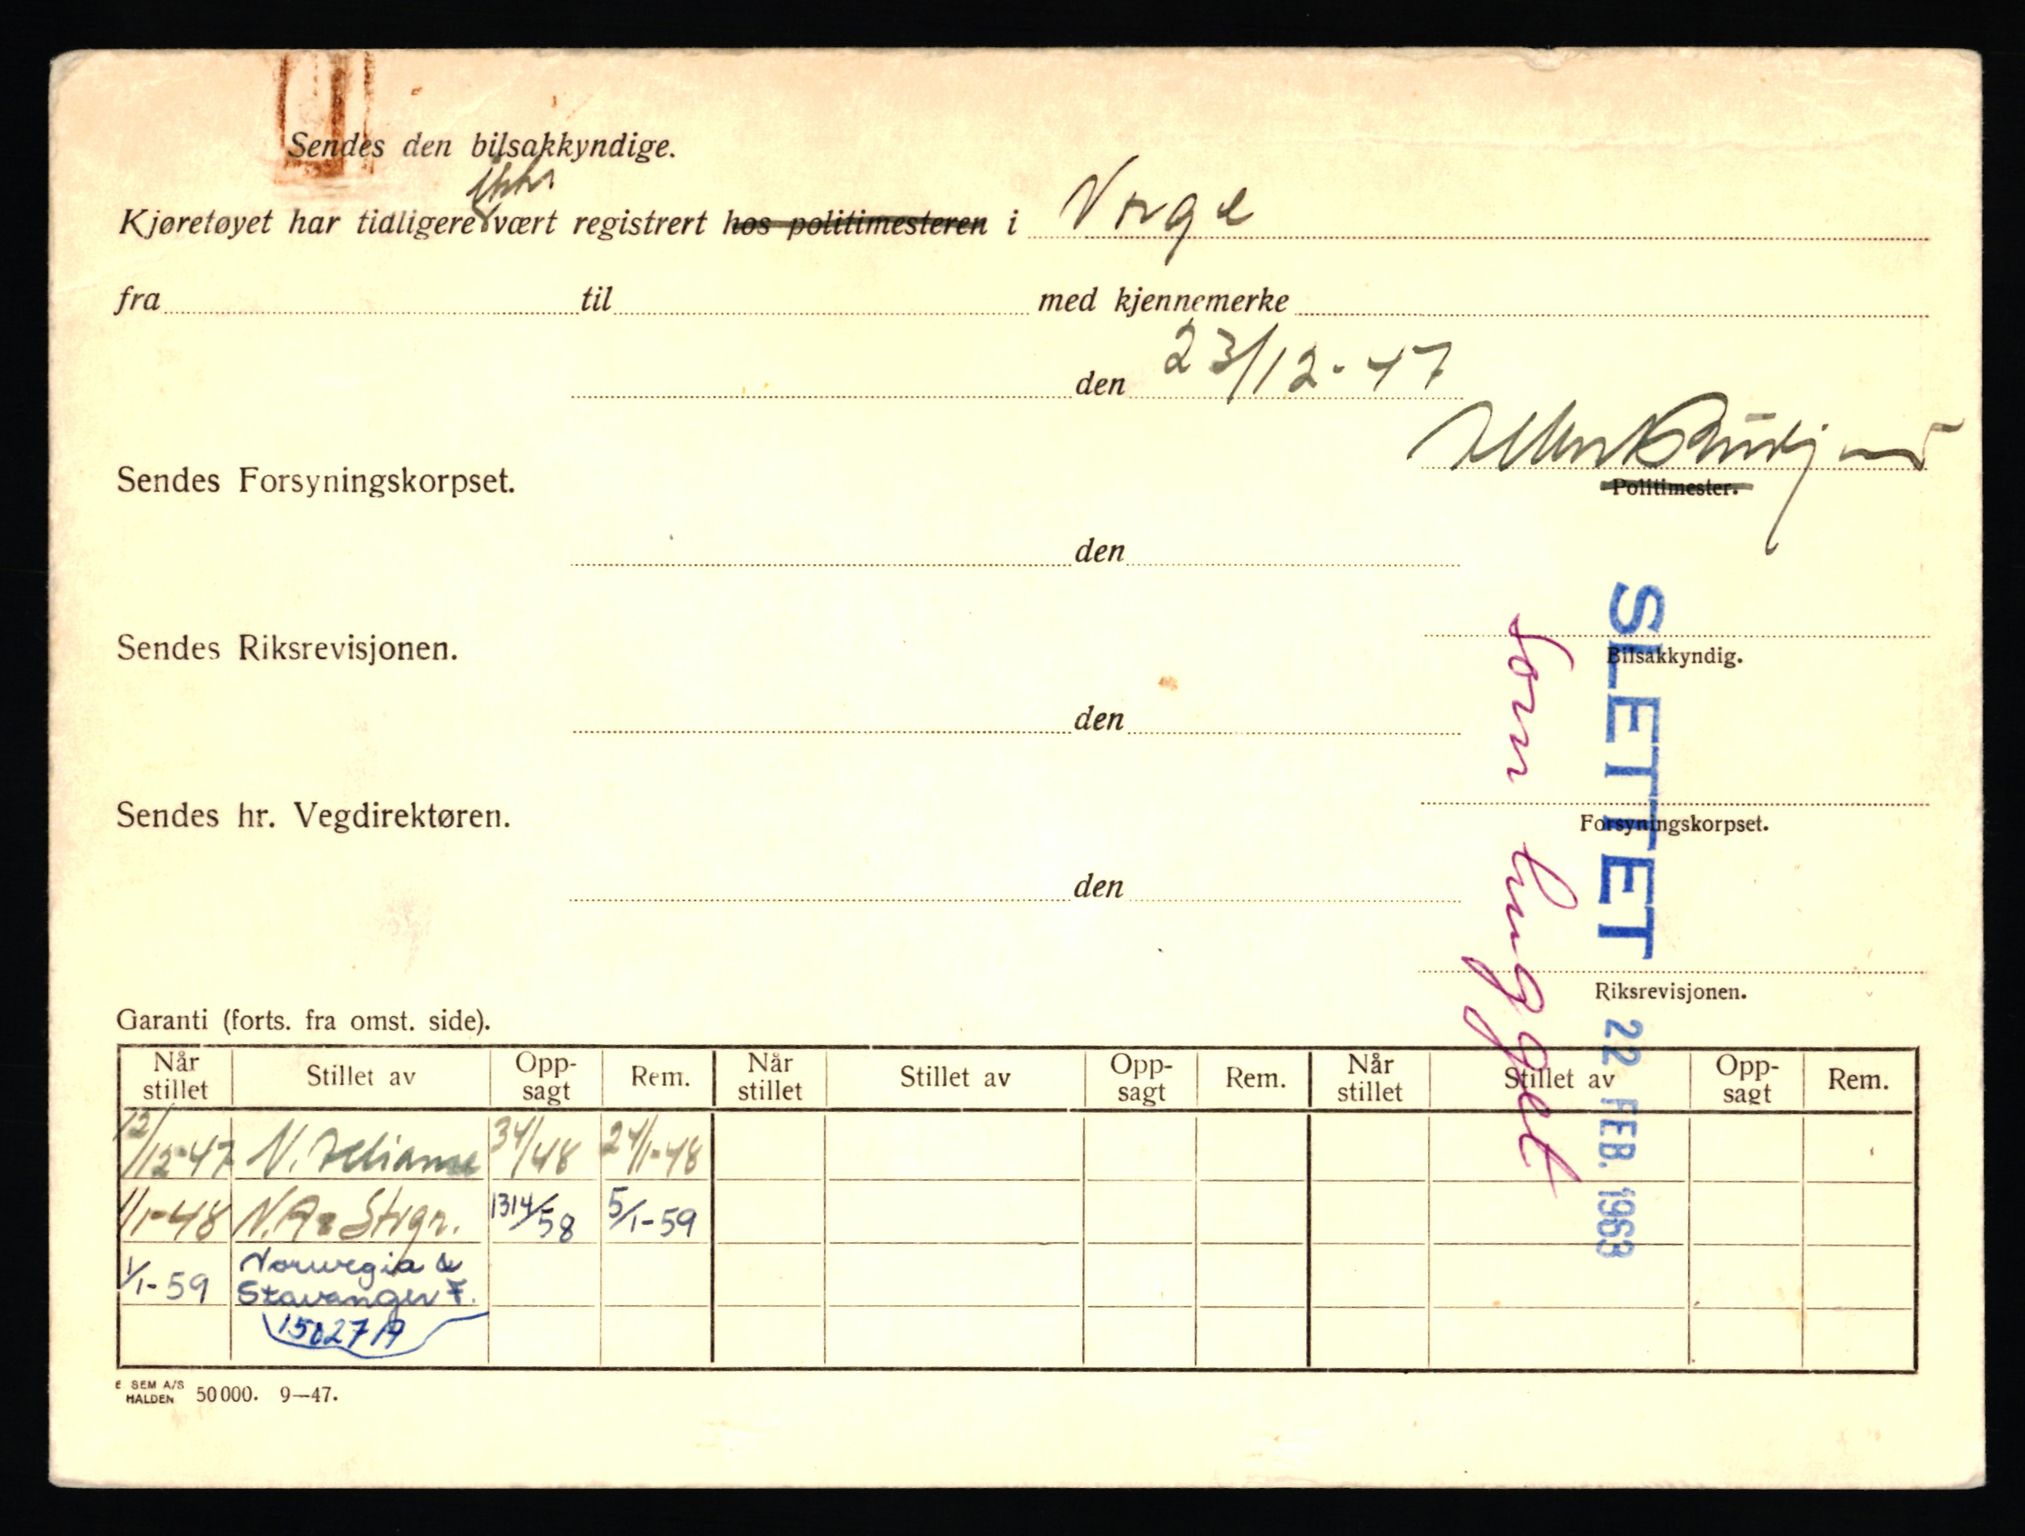 Sendes den bilsakkyndige.
ikke
Kjøretøyet har tidligere vært registrert hos politimesteren i Norge
fra til med kjennemerke
den 23/12-47
Politimester.
Sendes Forsyningskorpset.
den
Bilsakkyndig.
Sendes Riksrevisjonen.
den
Forsyningskorpset.
Sendes hr. Vegdirektøren.
den
Riksrevisjonen.
SLETTET 22 FEB. 1963
Som hugget
Garanti (forts. fra omst. side).
Når stillet Stillet av Opp-sagt Rem. Når stillet Stillet av Opp-sagt Rem. Når stillet Stillet av Opp-sagt Rem.
12/12-47 N. Alliance 34/48 24/1-48
1/1-48 N.A. & Stvgr. 1314/58 5/1-59
1/1-59 Norwegia & Stavanger F.
15027 A
E SEM A/S
HALDEN 50 000. 9—47.